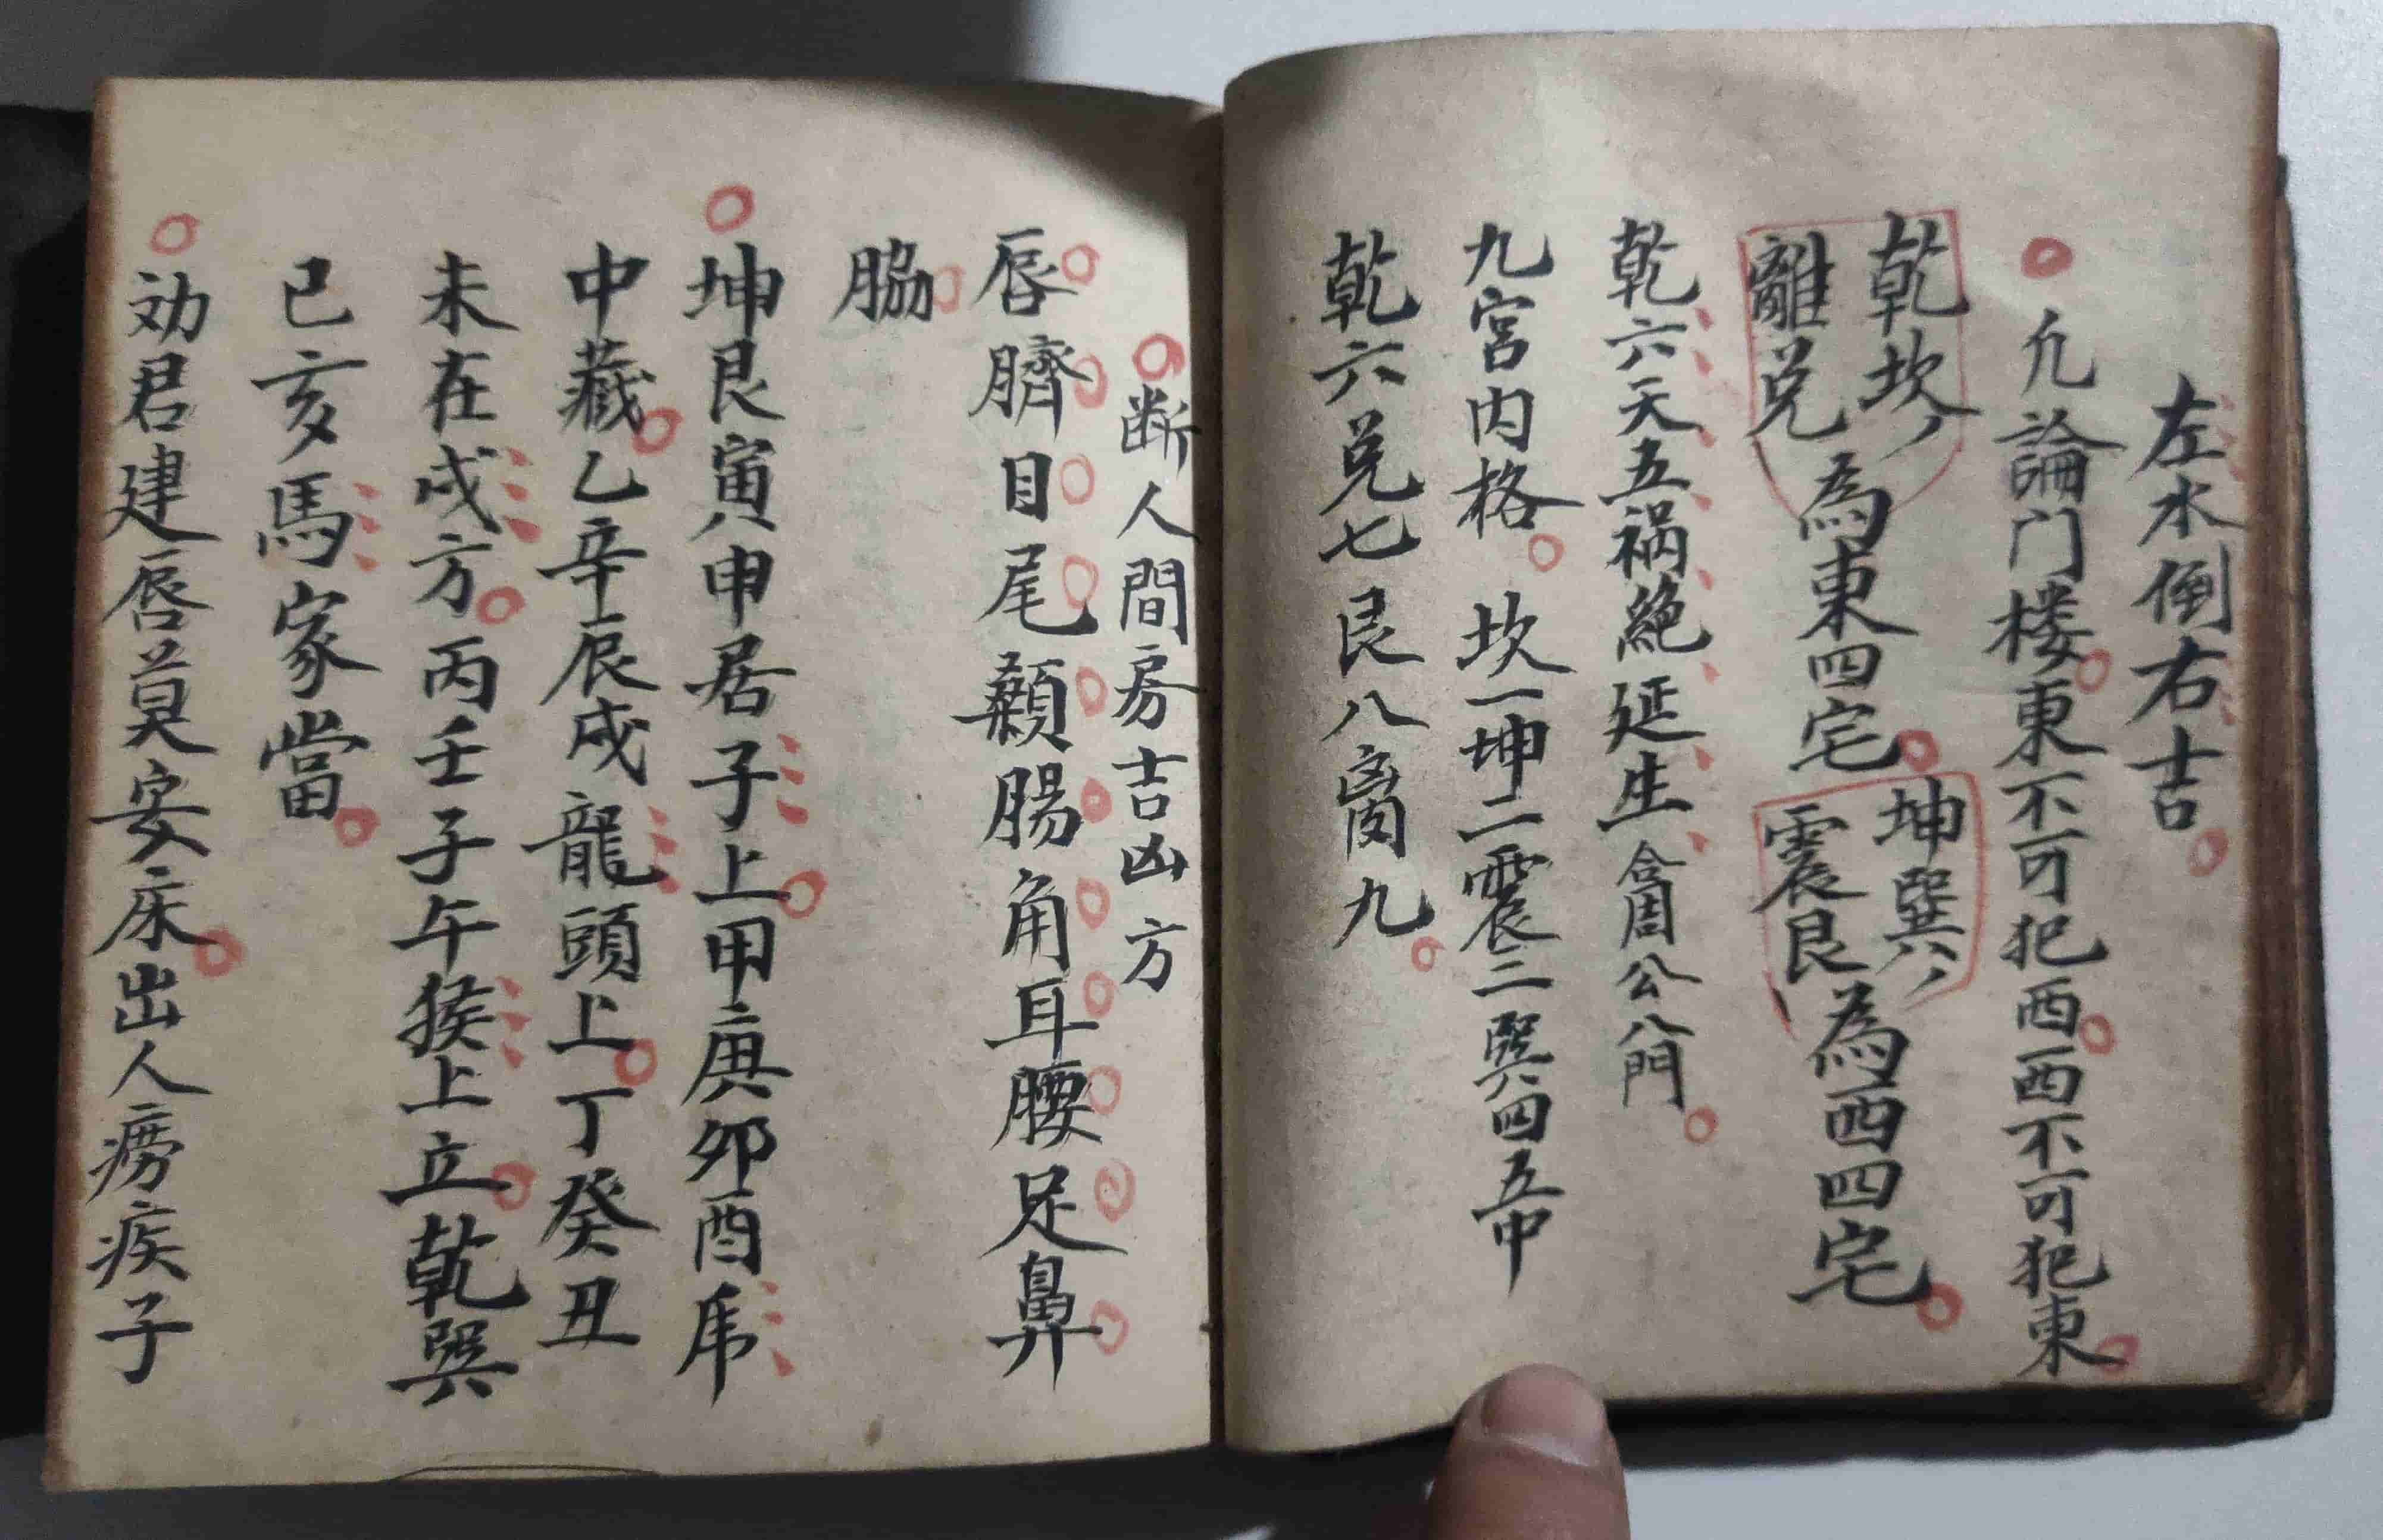 左水倒右吉
凢論门楼東不可犯西西不可犯東
乾坎離兑為東四宅坤巽震艮為西四宅
乾六天五禍絶延生 周公八門
九宮内格 坎一坤二震三巽四五中
乾六兑七艮八离九
断人間房吉凶方
唇臍目尾顙腸角耳腰足鼻
脇
坤艮寅申居子上甲庚夘酉乕
中藏乙辛辰戌龍頭上丁癸丑
未在戌方丙壬子午猴上立乾巽
已亥馬家當
効君建唇莫安床出人痨疾子